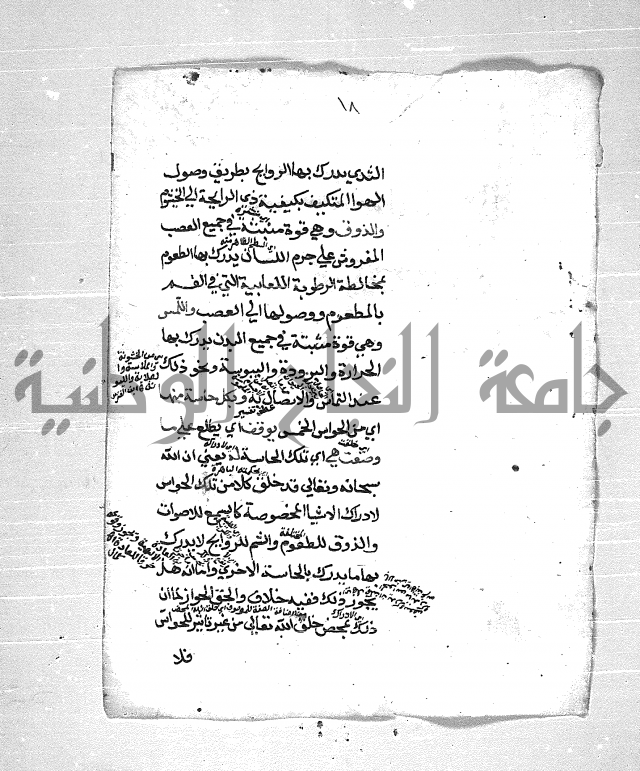 ١٨
الثدي يدرك بها الروايح بطريق وصول
الهوا المتكيف بكيفية ذي الرايحة الى الخيشوم
والذوق وهي قوة منبثة في جميع العصب
المفروش على جرم اللسان يدرك بها الطعوم
بمخالطة الرطوبة اللعابية التي في الفم
بالمطعوم ووصولها الى العصب واللمس
وهي قوة منبثة في جميع البدن يدرك بها
الحرارة والبرودة واليبوسة ونحو ذلك
عند التماس والاتصال به وبكل حاسة منها
اي من الحواس الخمس يوقف اي يطلع على ما
وضعت هي اي تلك الحاسة له يعني ان الله
سبحانه وتعالى قد خلق كلا من تلك الحواس
لادراك الاشيا المخصوصة كالسمع للاصوات
والذوق للطعوم والشم للروايح لا يدرك
بها ما يدرك بالحاسة الاخرى واما انه هل
يجوز ذلك ففيه خلاف والحق الجواز لما ان
ذلك بمحض خلق الله تعالى من غير تاثير للحواس
فلا
جامعة النجاح الوطنية